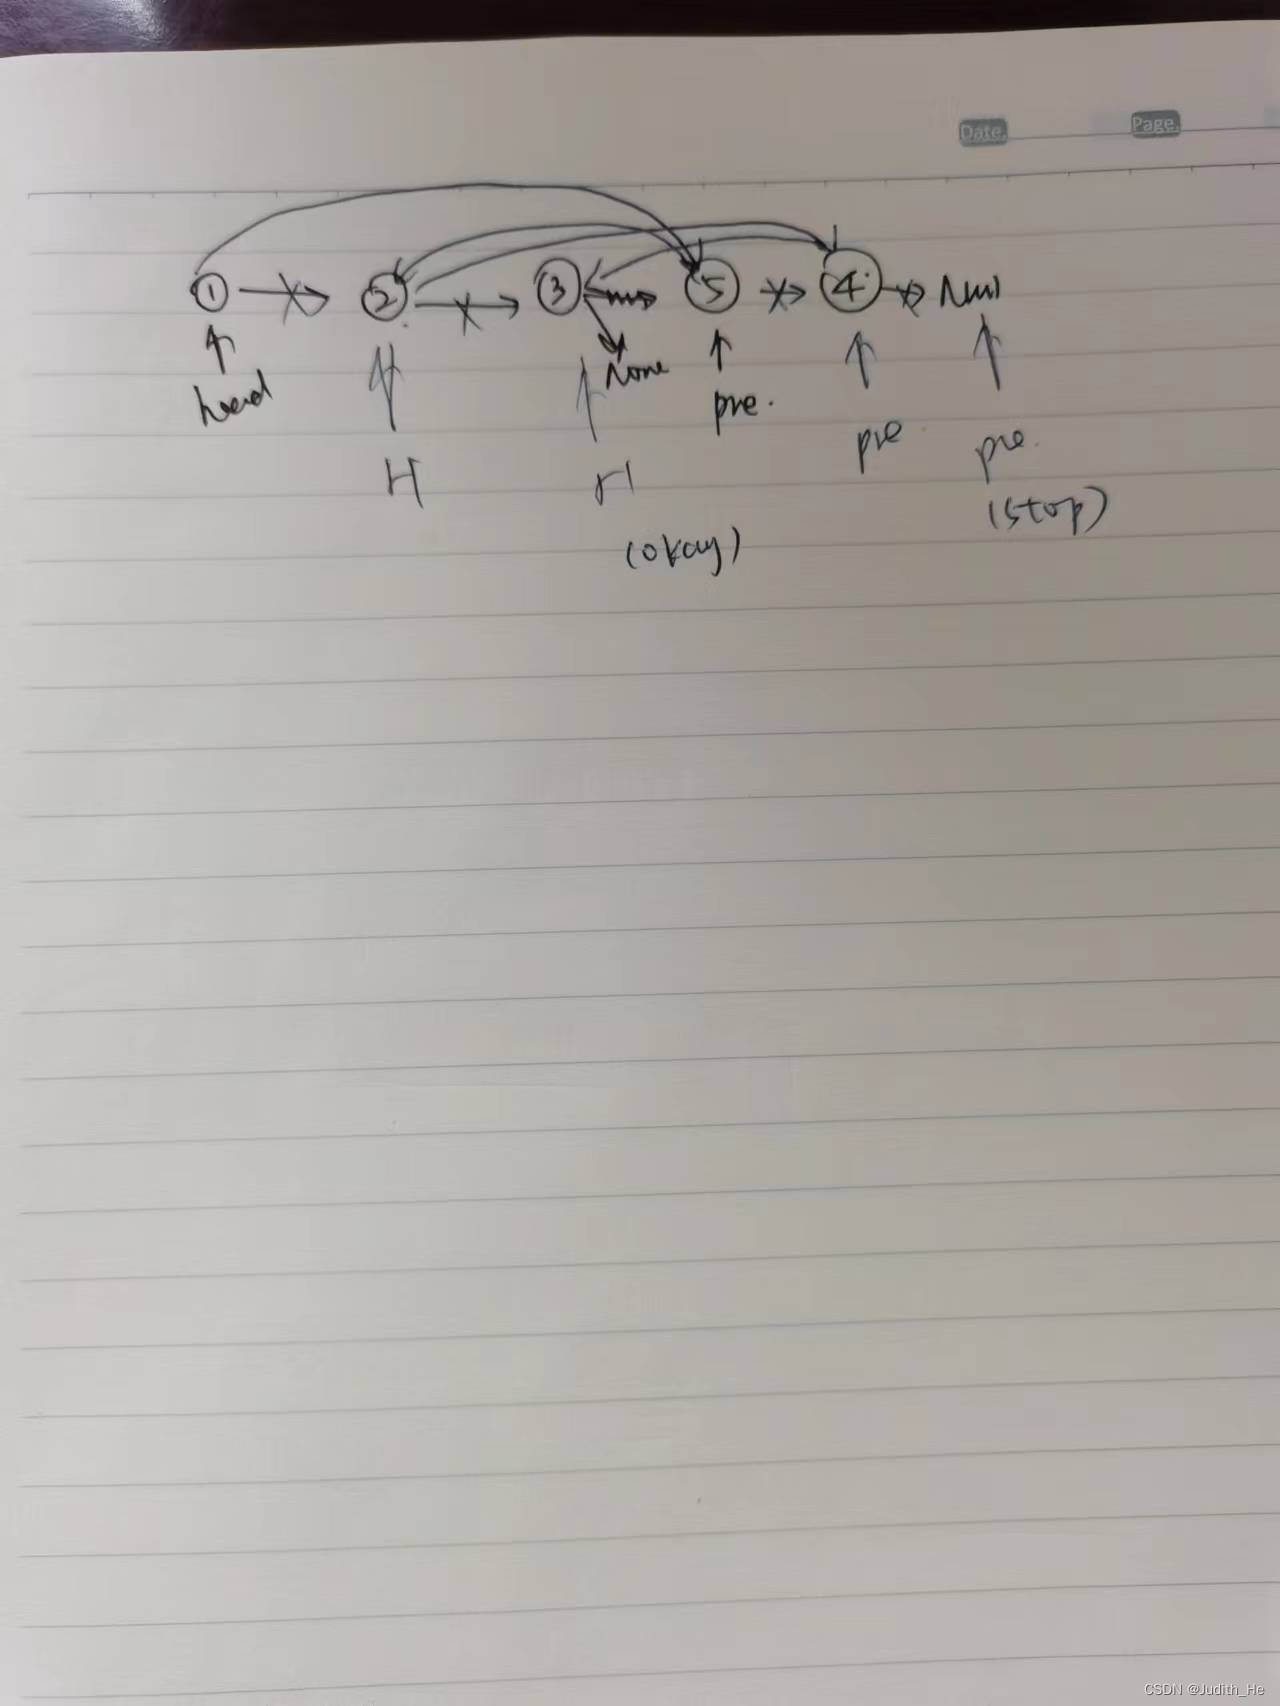 Date.
Page.
1 2 3 5 4 Null
None
head
pre.
pre
pre.
H
H
(stop)
(okay)
CSDN @Judith_He